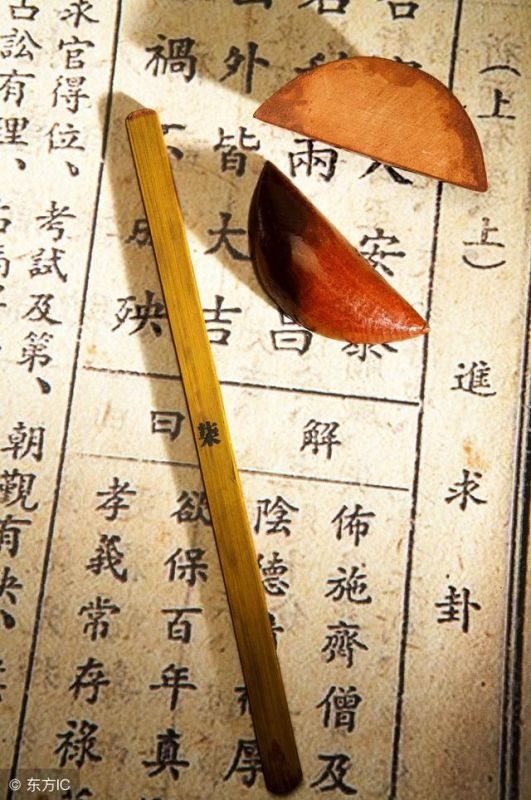 （上上）進求卦
安
兩昌
外皆大吉
禍不成殃
解曰
佈施齊僧及
陰德厚
欲保百年真
孝義常存祿
求官得位、考試及第、朝觀有
訟有理、
柒
© 东方IC